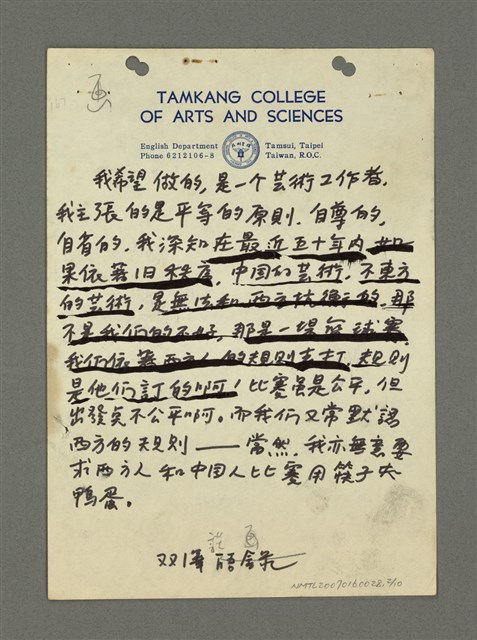 画
TAMKANG COLLEGE
OF ARTS AND SCIENCES
English Department
Phone 6212106-8
Tamsui, Taipei
Taiwan, R.O.C.
我希望做的,是一个芸術工作者,
我主張的是平等的原則.自尊的,
自省的.我深知在最近五十年内 如
果依着旧秩序,中国的芸術,不東方
的芸術,是無法和西方抗衡的.那
不是我们的不好,那是一場台球賽
我们依着西方人的規則去打,規則
是他们訂的啊!比賽虽是公平,但
出發点不公平啊。而我们又常默認
西方的規則——當然,我亦無意要
求西方人和中国人比賽用筷子夾
鴨蛋。
註 画
双溪語錄
NMTL20070160028, 2/10